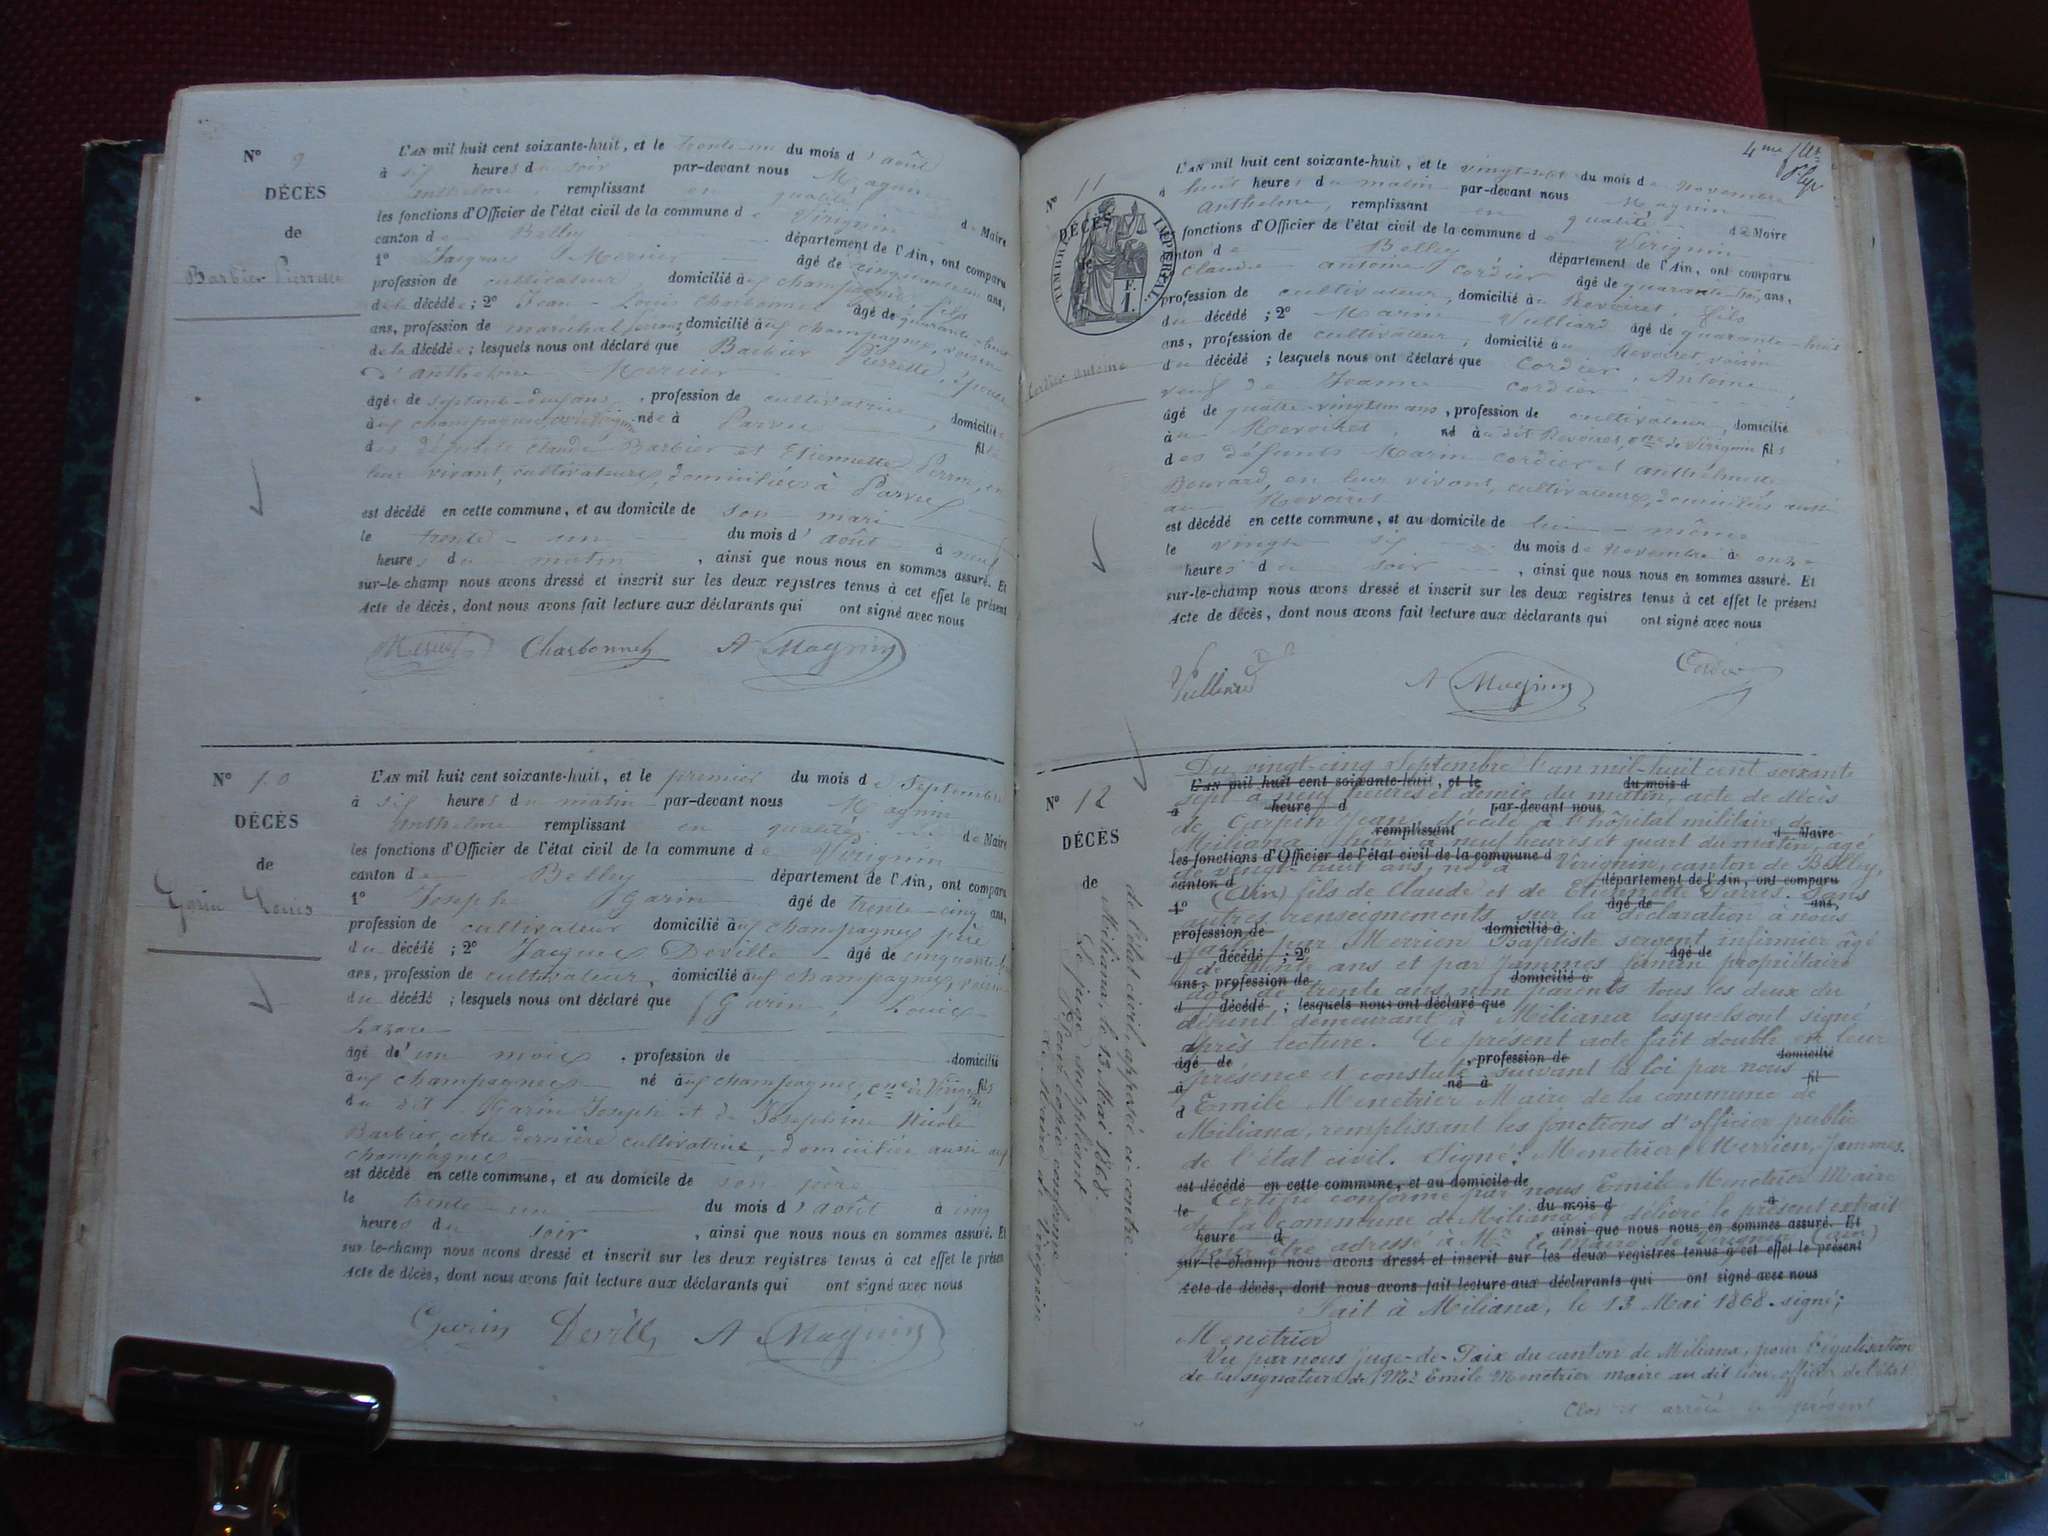 N° 9
DÉCÈS
de
Barbier Pierrette
L'AN mil huit cent soixante-huit, et le trente-un du mois d'août
à six heures du soir par-devant nous Magnin
Anthelme, remplissant en qualité de Maire
les fonctions d'Officier de l'état civil de la commune de Virignin
canton de Belley département de l'Ain, ont comparu
1° Jacques Mercier âgé de cinquante-un ans,
profession de cultivateur domicilié aux champagnes, fils
de la décédée ; 2° Jean-Louis Charbonnet âgé de quarante-huit
ans, profession de maréchal ferrant, domicilié aux champagnes, voisin
de la décédée ; lesquels nous ont déclaré que Barbier Pierrette, épouse
d'anthelme Mercier
âgée de septante-deux ans, profession de cultivatrice, domiciliée
aux champagnes, née à Parves fille
des défunts Claude Barbier et Etiennette Perrin, en
leur vivant, cultivateurs, domiciliés à Parves
est décédé en cette commune, et au domicile de son mari
le trente-un du mois d'août à neuf
heures du matin, ainsi que nous nous en sommes assuré. Et
sur-le-champ nous avons dressé et inscrit sur les deux registres tenus à cet effet le présent
Acte de décès, dont nous avons fait lecture aux déclarants qui ont signé avec nous
Mercier Charbonnet A Magnin
N° 10
DÉCÈS
de
Garin Louis
L'AN mil huit cent soixante-huit, et le premier du mois de Septembre
à six heures du matin par-devant nous Magnin
Anthelme remplissant en qualité de Maire
les fonctions d'Officier de l'état civil de la commune de Virignin
canton de Belley département de l'Ain, ont comparu
1° Joseph Garin âgé de trente-cinq ans,
profession de cultivateur domicilié aux champagnes père
du décédé ; 2° Jacques Deville âgé de cinquante
ans, profession de cultivateur, domicilié aux champagnes, voisin
du décédé ; lesquels nous ont déclaré que Garin, Louis-
Lazare
âgé d'un mois, profession de domicilié
aux champagnes né aux champagnes, cne de Virignin fils
du dit Garin Joseph et de Joséphine Nicole
Barbier, cette dernière cultivatrice, domiciliée aussi aux
champagnes
est décédé en cette commune, et au domicile de son père
le trente-un du mois d'août à cinq
heures du soir, ainsi que nous nous en sommes assuré. Et
sur-le-champ nous avons dressé et inscrit sur les deux registres tenus à cet effet le présent
Acte de décès, dont nous avons fait lecture aux déclarants qui ont signé avec nous
Garin Deville A Magnin
4me
N° 11
DÉCÈS
de
TIMBRE IMPÉRIAL
1 F.
Cordier Antoine
L'AN mil huit cent soixante-huit, et le vingt-sept du mois de novembre
à huit heures du matin par-devant nous Magnin
Anthelme, remplissant en qualité de Maire
fonctions d'Officier de l'état civil de la commune de Virignin
canton de Belley département de l'Ain, ont comparu
Claude antoine Cordier âgé de quarante-six ans,
profession de cultivateur, domicilié au Revoiret, fils
du décédé ; 2° Marin Vulliard âgé de quarante-huit
ans, profession de cultivateur, domicilié au Revoiret, voisin
du décédé ; lesquels nous ont déclaré que Cordier, Antoine
veuf de Jeanne Cordier
âgé de quatre-vingt un ans, profession de cultivateur, domicilié
au Revoiret, né au dit Revoiret, cne de Virignin fils
des défunts Marin Cordier et anthelmette
Bouvard, en leur vivant, cultivateurs, domiciliés aussi
au Revoiret
est décédé en cette commune, et au domicile de lui-même
le vingt six du mois de novembre à onze
heures du soir, ainsi que nous nous en sommes assuré. Et
sur-le-champ nous avons dressé et inscrit sur les deux registres tenus à cet effet le présent
Acte de décès, dont nous avons fait lecture aux déclarants qui ont signé avec nous
Vulliard A Magnin Cordier
N° 12
DÉCÈS
de
Du vingt-cinq Septembre l'an mil-huit cent soixante
L'AN mil huit cent soixante-huit, et le du mois d
sept à neuf heures et demie du matin, acte de décès
à heure d par-devant nous
de Carpin Jean, décédé à l'hôpital militaire de
remplissant d Maire
Miliana hier à neuf heures et quart du matin, âgé
les fonctions d'Officier de l'état civil de la commune d
de vingt-huit ans, né à Virignin, canton de Belley,
canton d département de l'Ain, ont comparu
(Ain) fils de Claude et de Etiennette Sans
1° âgé de ans,
autres renseignements sur la déclaration à nous
profession de domicilié à
faite par Merrien Baptiste sergent infirmier âgé
d décédé ; 2° âgé de
de trente ans et par Jammes Firmin propriétaire
ans, profession de domicilié à
âgé de trente ans, non parents tous les deux du
d décédé ; lesquels nous ont déclaré que
défunt demeurant à Miliana lesquels ont signé
après lecture. Le présent acte fait double en leur
âgé de , profession de domicilié
présence et constaté suivant la loi par nous
à né à fil
Emile Menetrier Maire de la commune de
d
Miliana, remplissant les fonctions d'officier public
de l'état civil. Signé : Menetrier, Merrien, Jammes.
est décédé en cette commune, et au domicile de
Certifié conforme par nous Emile Menetrier Maire
le du mois d à
de la commune de Miliana et délivré le présent extrait
heure d , ainsi que nous nous en sommes assuré. Et
pour être adressé à Mr le Maire de Virignin (Ain)
sur-le-champ nous avons dressé et inscrit sur les deux registres tenus à cet effet le présent
Acte de décès, dont nous avons fait lecture aux déclarants qui ont signé avec nous
Fait à Miliana, le 13 Mai 1868. signé ;
Menetrier
Vu par nous juge-de-Paix du canton de Miliana, pour légalisation
de la signature de Mr Emile Menetrier maire au dit lieu, officier de l'état
de l'état civil, apposée ci-contre.
Miliana, le 13 Mai 1868.
Le juge suppléant
Pour copie conforme
Le Maire de Virignin.
Clos et arrêté le présent